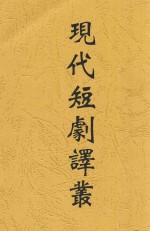 現代短劇譯叢